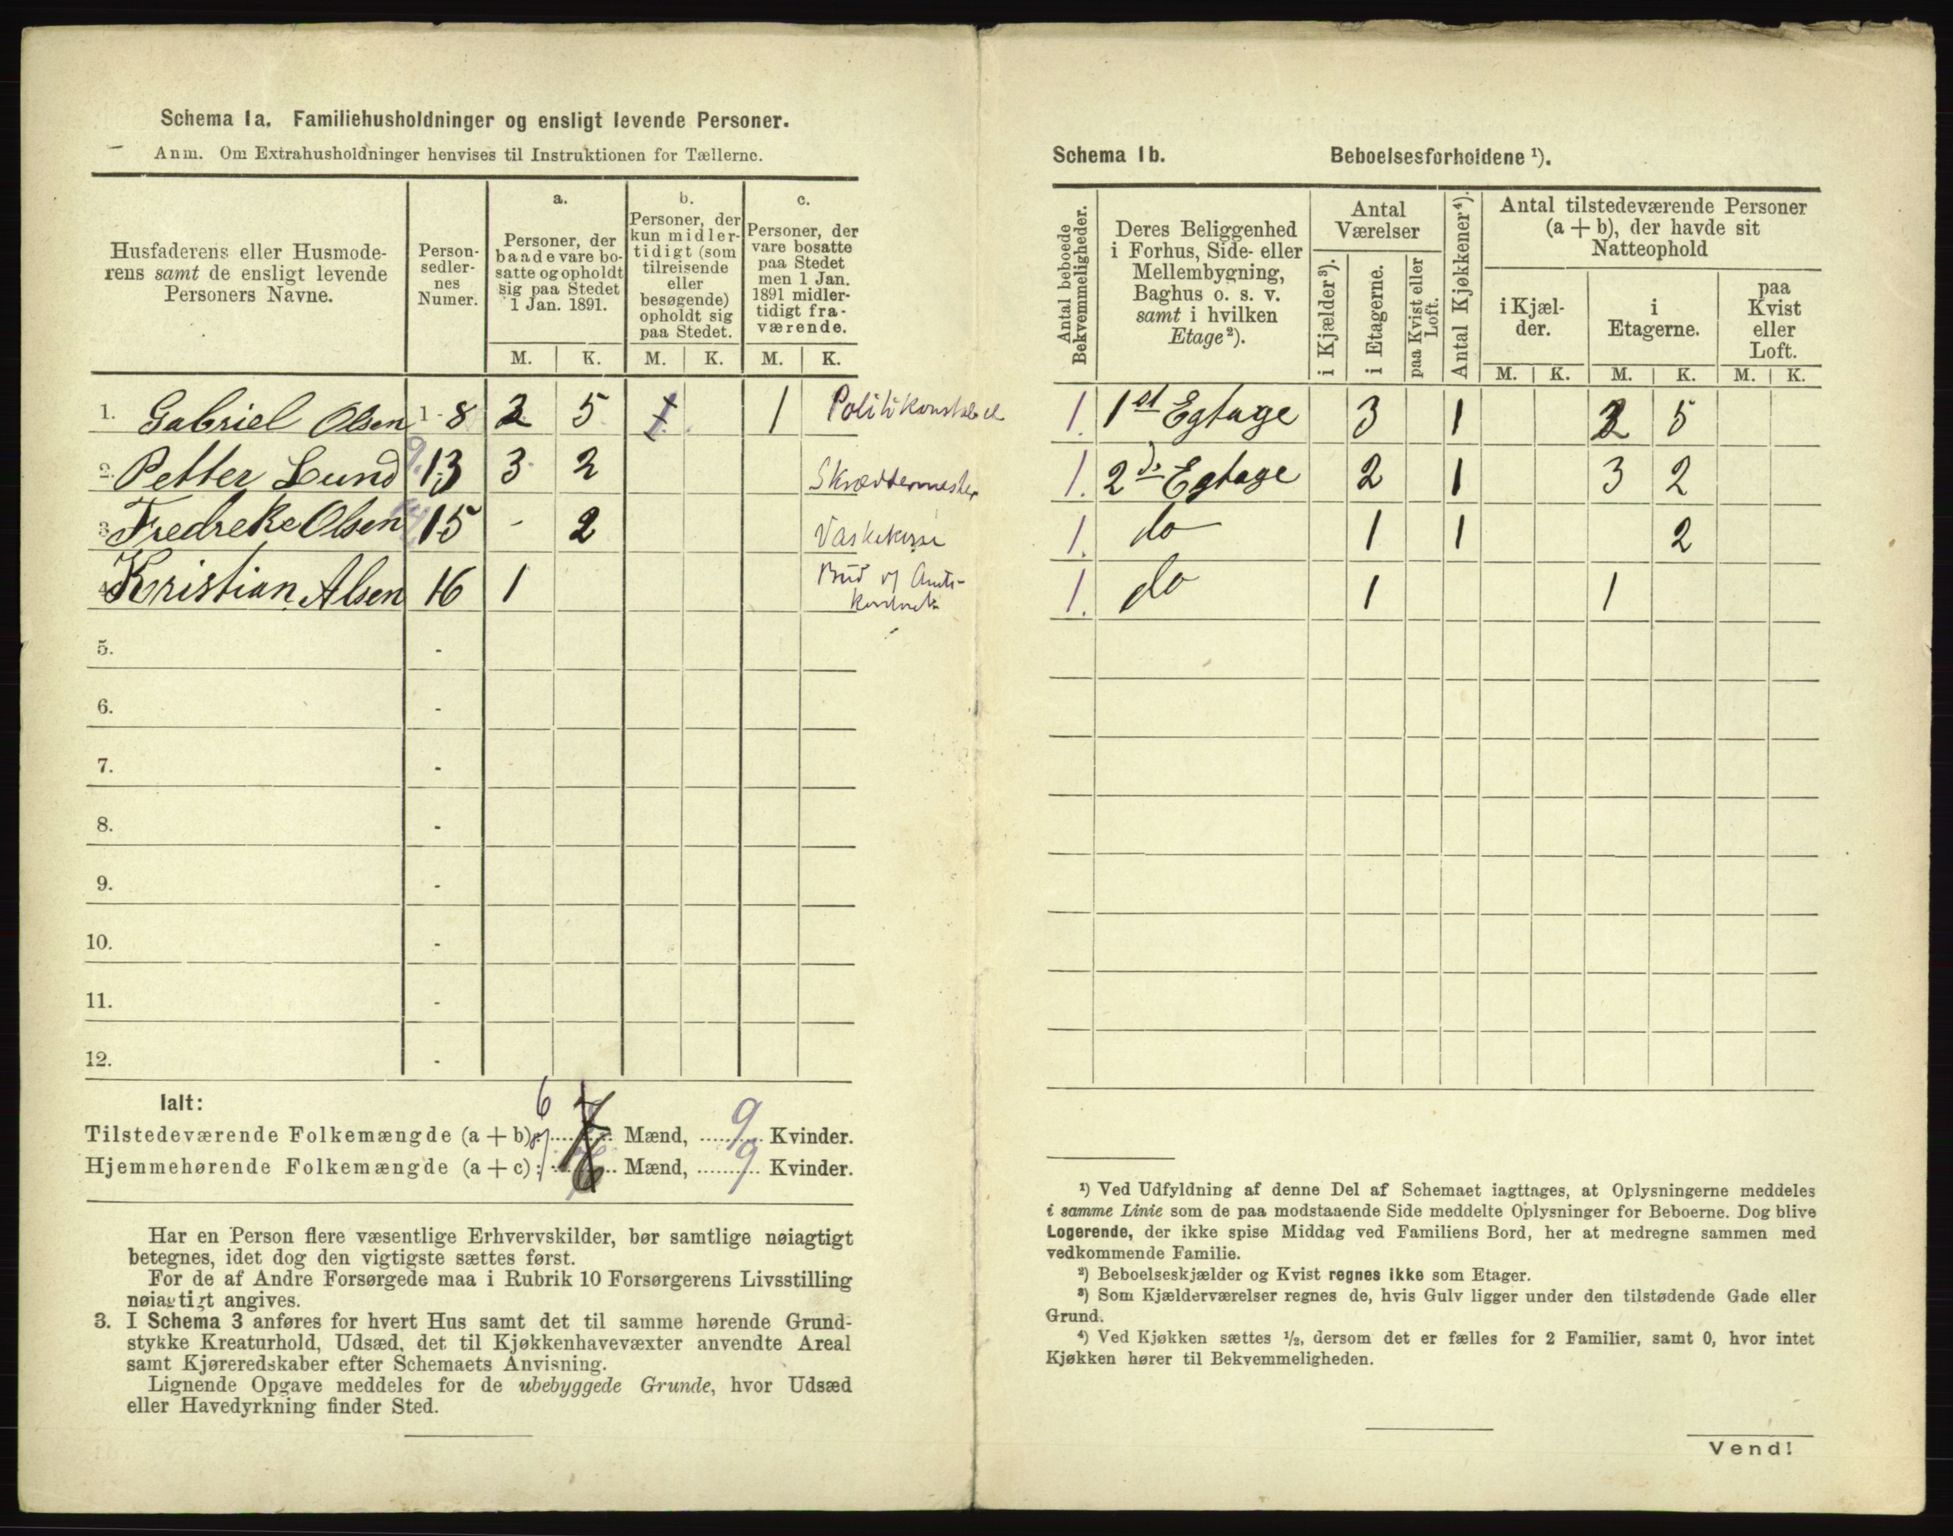 Schema 1a. Familiehusholdninger og ensligt levende Personer.
Anm. Om Extrahusholdninger henvises til Instruktionen for Tællerne.
Husfaderens eller Husmode-
rens samt de ensligt levende
Personers Navne.
Person-
sedler-
nes
Numer.
a.
Personer, der
baade vare bo-
satte og opholdt
sig paa Stedet
1 Jan. 1891.
b.
Personer, der
kun midler-
tidigt (som
tilreisende
eller
besøgende)
opholdt sig
paa Stedet.
c.
Personer, der
vare bosatte
paa Stedet
men 1 Jan.
1891 midler-
tidigt fra-
værende.
M. K. M. K. M. K.
1. Gabriel Olsen 1-8 2 5 1 1 Politikonstabel
2. Petter Lund 9. 13 3 2 Skræddermester
3. Fredreke Olsen 15 - 2 Vaskekone
4. Kristian Alsen 16 1 Bud
5. -
6. -
7. -
8. -
9. -
10. -
11. -
12. -
Ialt:
Tilstedeværende Folkemængde (a + b): 6 Mænd, 9 Kvinder.
Hjemmehørende Folkemængde (a + c): 7 Mænd, 9 Kvinder.
Har en Person flere væsentlige Erhvervskilder, bør samtlige nøiagtigt
betegnes, idet dog den vigtigste sættes først.
For de af Andre Forsørgede maa i Rubrik 10 Forsørgerens Livsstilling
nøiagtigt angives.
3. I Schema 3 anføres for hvert Hus samt det til samme hørende Grund-
stykke Kreaturhold, Udsæd, det til Kjøkkenhavevæxter anvendte Areal
samt Kjøreredskaber efter Schemaets Anvisning.
Lignende Opgave meddeles for de ubebyggede Grunde, hvor Udsæd
eller Havedyrkning finder Sted.
Schema 1b. Beboelsesforholdene ¹).
Antal beboede
Bekvemmeligheder.
Deres Beliggenhed
i Forhus, Side- eller
Mellembygning,
Baghus o. s. v.
samt i hvilken
Etage²).
Antal
Værelser
i Kjælder³).
i Etagerne.
paa Kvist eller
Loft.
Antal Kjøkkener⁴).
Antal tilstedeværende Personer
(a + b), der havde sit
Natteophold
i Kjæl-
der.
i
Etagerne.
paa
Kvist
eller
Loft.
M. K. M. K. M. K.
1. 1st Egtage 3 1 2 5
1. 2de Egtage 2 1 3 2
1. do 1 1 2
1. do 1 1
¹) Ved Udfyldning af denne Del af Schemaet iagttages, at Oplysningerne meddeles
i samme Linie som de paa modstaaende Side meddelte Oplysninger for Beboerne. Dog blive
Logerende, der ikke spise Middag ved Familiens Bord, her at medregne sammen med
vedkommende Familie.
²) Beboelseskjælder og Kvist regnes ikke som Etager.
³) Som Kjælderværelser regnes de, hvis Gulv ligger under den tilstødende Gade eller
Grund.
⁴) Ved Kjøkken sættes ½, dersom det er fælles for 2 Familier, samt 0, hvor intet
Kjøkken hører til Bekvemmeligheden.
Vend!